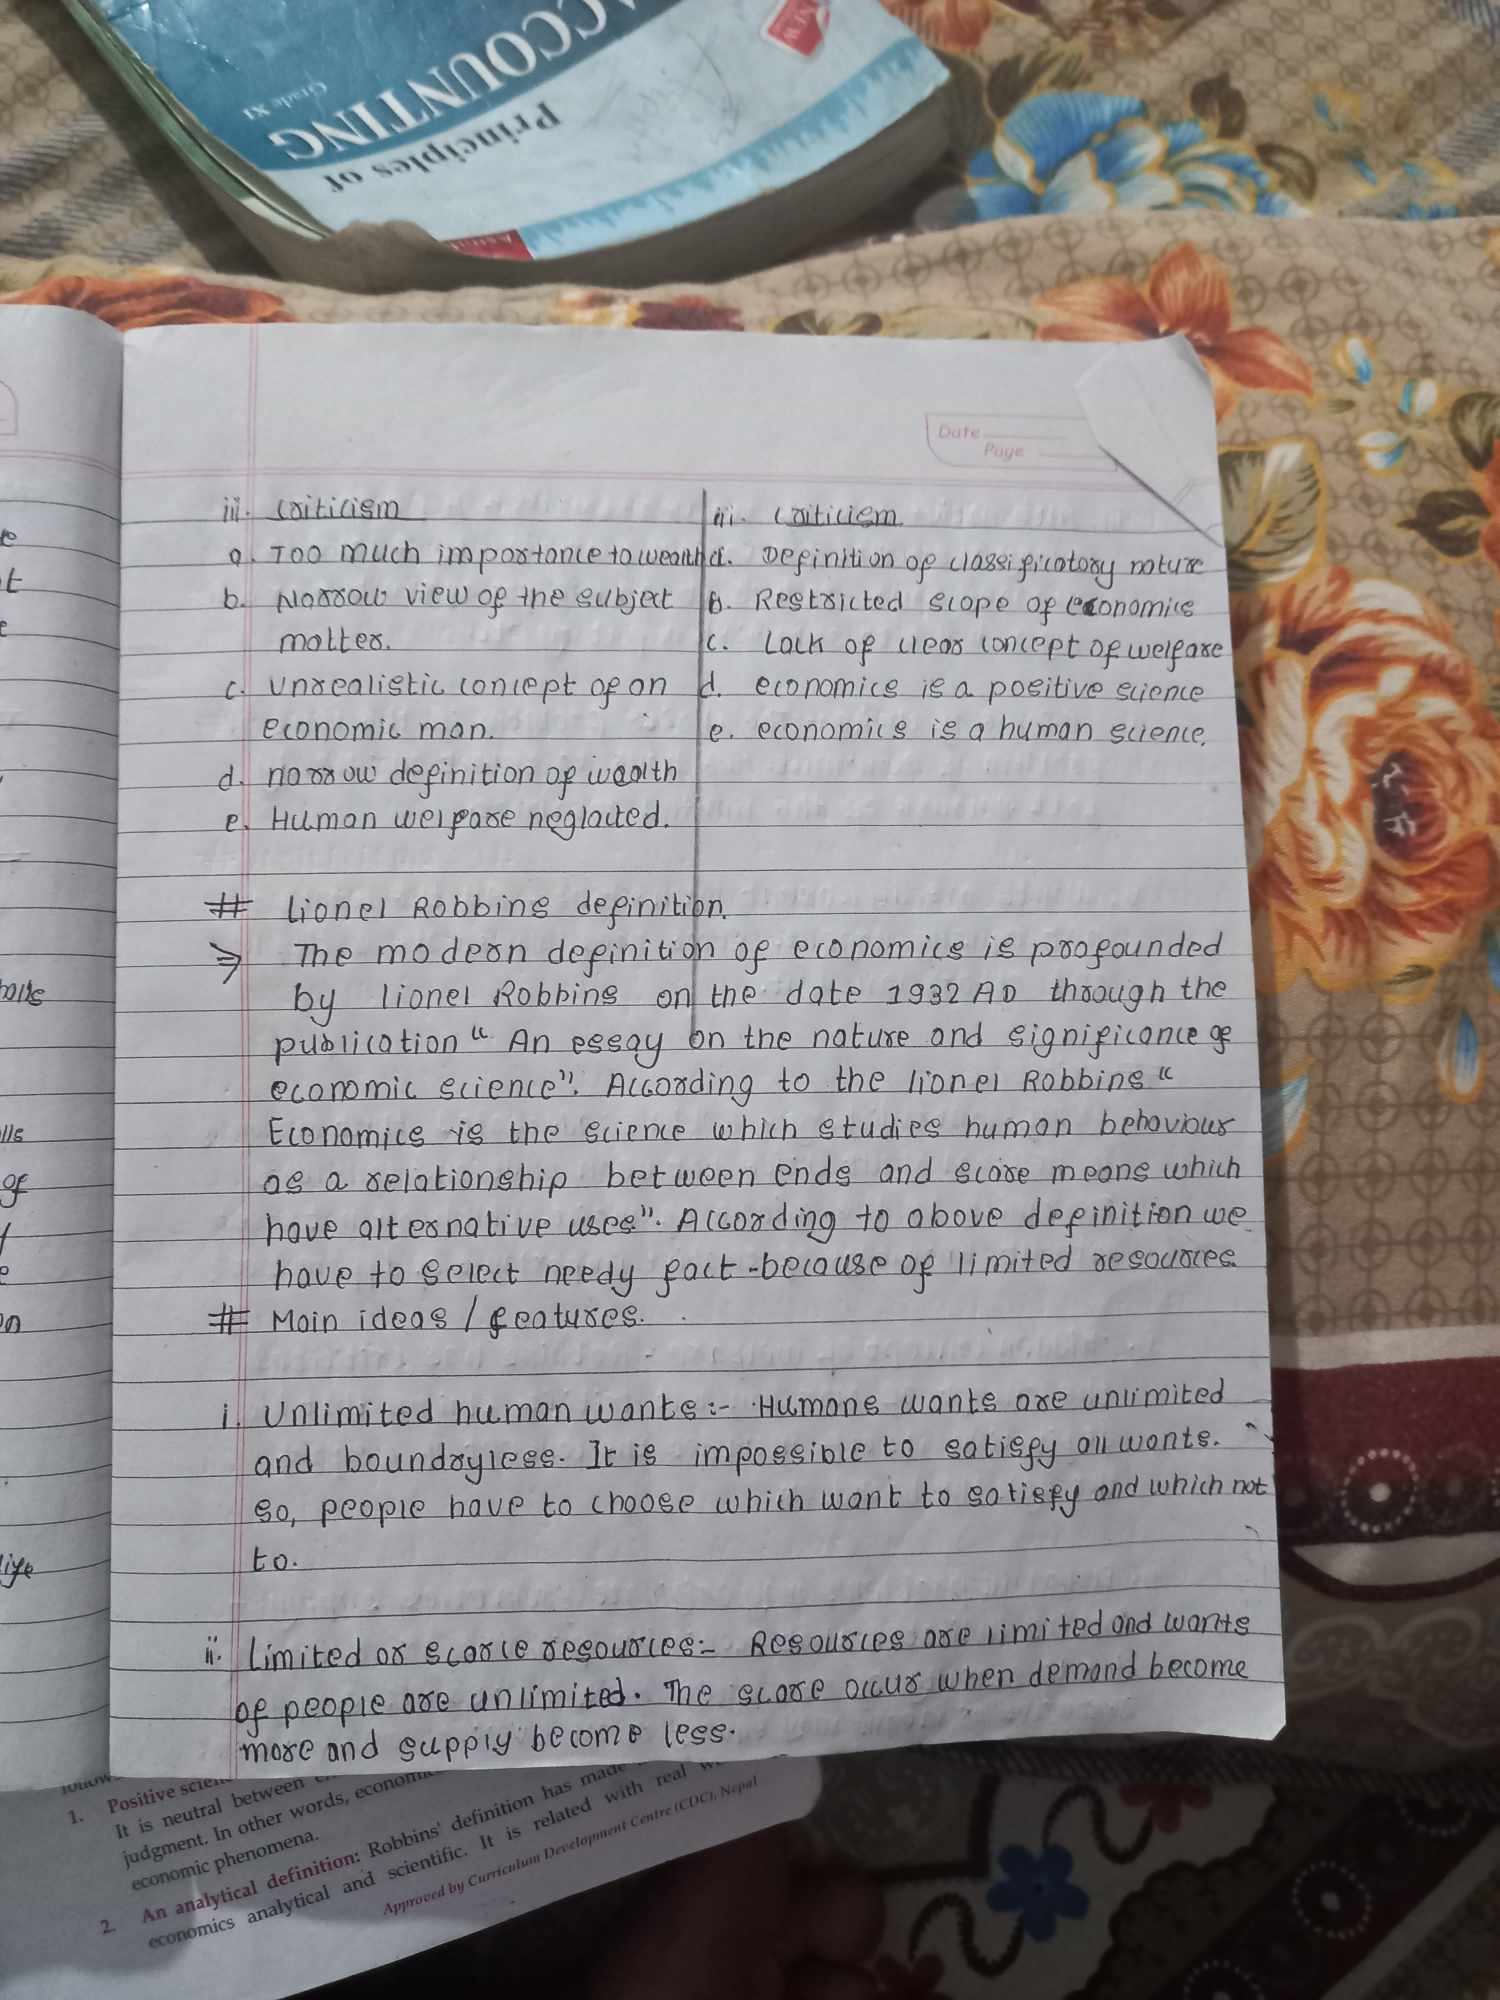 Principles of
ACCOUNTING
Grade XI
NEW
Date
Page
iii. Criticism
a. Too much importance to wealth
b. Narrow view of the subject
matter.
c. Unrealistic concept of an
economic man.
d. narrow definition of wealth
e. Human welfare neglacted.
iii. Criticism
a. Definition of classificatory nature
b. Restricted scope of economics
c. Lack of clear concept of welfare
d. economics is a positive science
e. economics is a human science.
# Lionel Robbins definition.
⇒ The modern definition of economics is profounded
by lionel Robbins on the date 1932 AD through the
publication “ An essay on the nature and significance of
economic science”. According to the lionel Robbins “
Economics is the science which studies human behaviour
as a relationship between ends and scare means which
have alternative uses”. According to above definition we
have to select needy fact -because of limited resources.
# Main ideas / features.
i. Unlimited human wants :- Humans wants are unlimited
and boundryless. It is impossible to satisfy all wants.
so, people have to choose which want to satisfy and which not
to.
ii. Limited or scarce resources:- Resources are limited and wants
of people are unlimited. The scare occur when demand become
more and supply become less.
of
life
1. Positive
It is neutral between
judgment. In other words,
economic phenomena.
2. An analytical definition: Robbins' definition has made
economics analytical and scientific. It is related with real
Approved by Curriculum Development Centre (CDC), Nepal